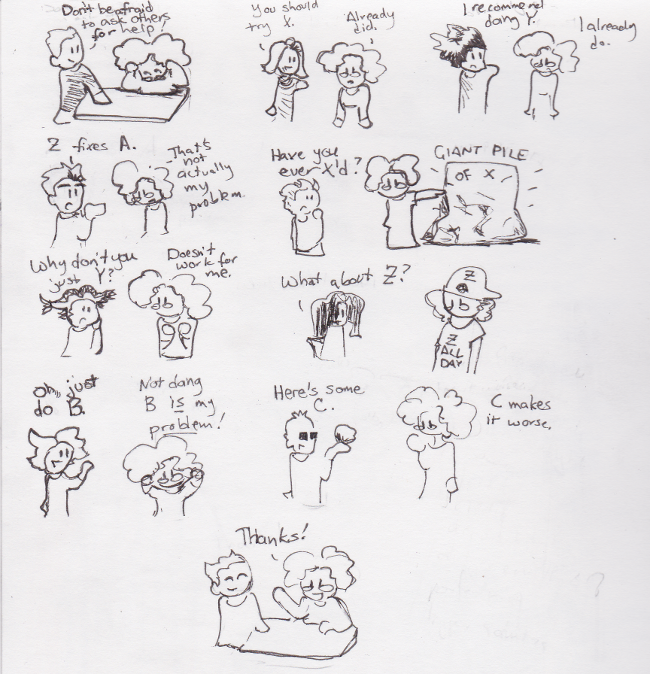 Don't be afraid
to ask others
for help!
You should
try X.
Already
did.
I recommend
doing Y.
I already
do.
Z fixes A.
That's
not
actually
my
problem.
Have you
ever X'd?
GIANT PILE
OF X
Why don't you
just Y?
Doesn't
work for
me.
What about Z?
Z
Z
ALL
DAY
Oh, just
do B.
Not doing
B is my
problem!
Here's some
C.
C makes
it worse.
Thanks!